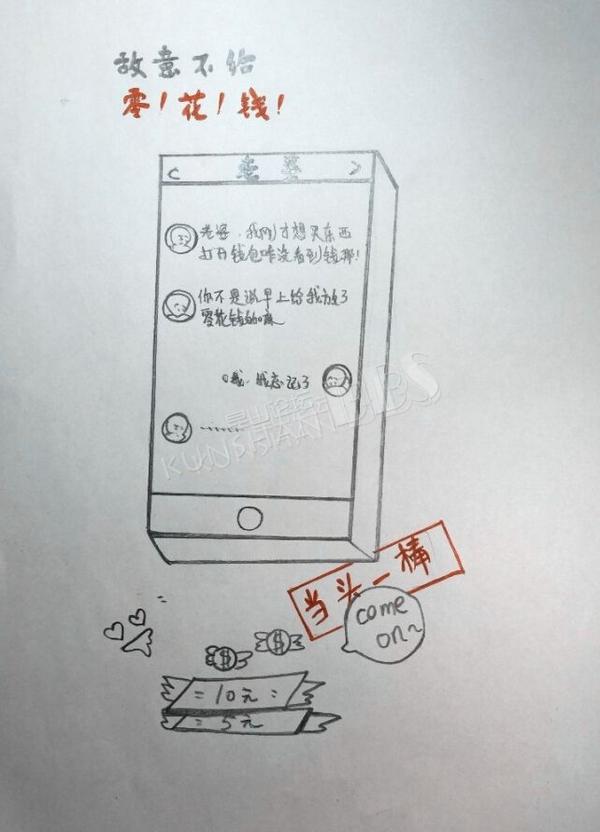 敌意不给
零！花！钱！
< 老婆 >
老婆，我刚才想买东西
打开钱包咋没看到钱那！
你不是说早上给我放了
零花钱的嘛
哦，我忘记了
........
昆山论坛 BBS
KUNSHAN
当头一棒
come
on~
$ $
= 10元 =
= 5元